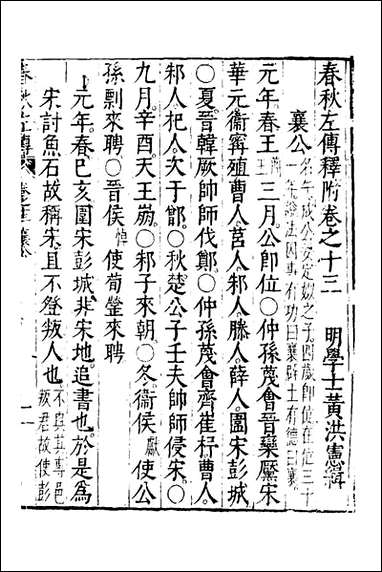 春秋左傳釋附卷之十三
明學士黃洪憲輯
襄公 名午成公妾定姒之子四歲卽位在位三十一年謚法因事有功曰襄辟土有德曰襄
元年春王 簡王 三月公卽位〇仲孫蔑會晉欒黶宋
華元衞甯殖曹人莒人邾人滕人薛人圍宋彭城
〇夏晉韓厥帥師伐鄭〇仲孫蔑會齊崔杼曹人
邾人杞人次于鄫〇秋楚公子壬夫帥師侵宋〇
九月辛酉天王崩〇邾子來朝〇冬衞侯 獻 使公
孫剽來聘〇晉侯 悼 使荀罃來聘
元年春己亥圍宋彭城非宋地追書也於是爲
宋討魚石故稱宋且不登叛人也 不與其專邑叛君故使彭